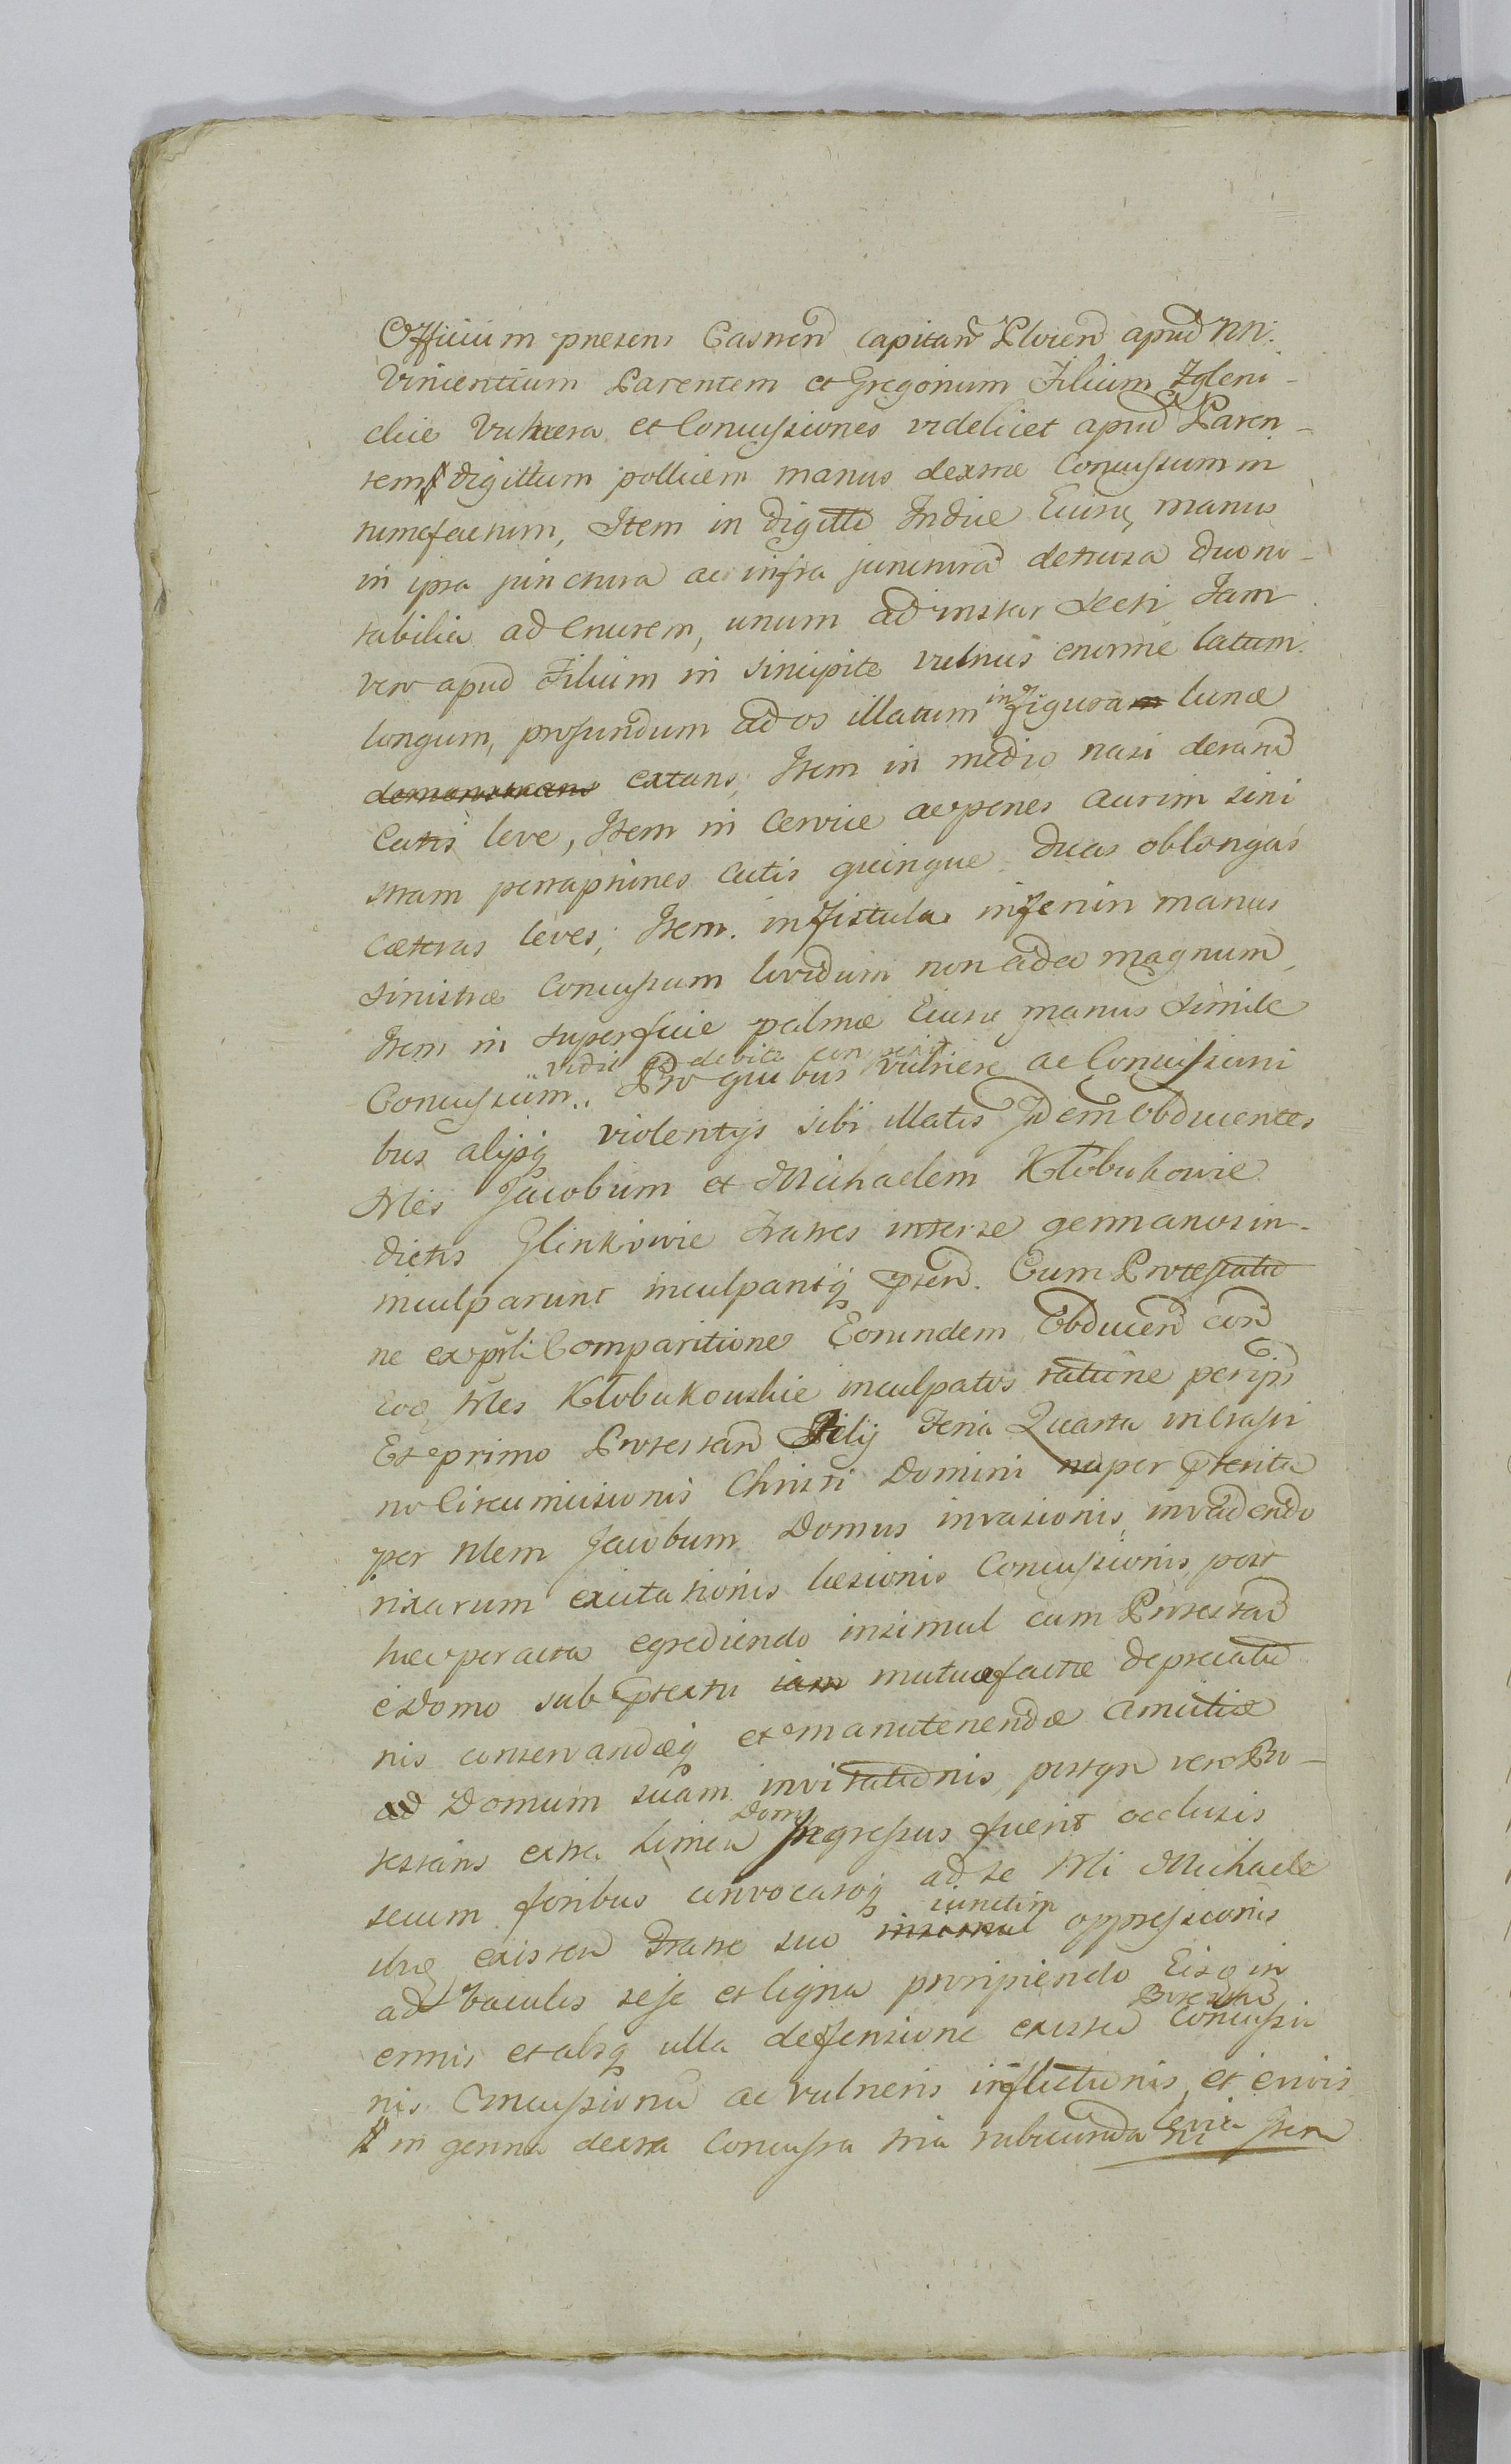 Officium presens Casnen̄ capitan̄ Plocen̄ apud NN:
Vincentium Parentem et Gregorium Filium Zgleni-
ckie Vulnera et Concussiones videlicet apud Paren-
tem digittum pollicem manus dextræ Concussum in
tumefactum, Item in digitto Indice Eiusq manus
in ipsa junctura ac infra juncturā detrusa duo no-
tabilia ad Cruorem, unum ad instar secti Jam
vero apud Filium in sincipite vulnus enorme latum
longum, profundum ad os illatum in figura lunæ
demonstrans extans, Item in medio nasi derasū
Cutis leve, Item in Cervice ac penes aurim sini
stram perraptiones Cutis quinque duas oblongas
Cæteras leves, Item in fistula inferiori manus
sinistræ Concussum lividum non adeo magnum,
Item in superficie palmæ Eiusd manus simile
vidit et debite conspexit
Concussum. Pro quibus vulnere ac Concussioni
bus alijsq violentijs sibi illatis Jidem Obducentes
Nles Jacobum et Michaelem Kłobukowie
dictis Glinkowie Fratres inter se germanos in-
inculparunt inculpantq pten̄. Cum Protestatio
ne ex psli Comparitione Eorundem Obducen̄ con̄
eosq Nles Kłobukowskie inculpatos ratione per ipsū
Et primo Protestan̄ Filij Feria Quarta in Crasti
no Circumcisionis Christi Domini nuper pterita
per Nlem Jacobum Domus invasionis, invadendo
rixarum excitationis læsionis Concussionis, post
hæc peracta egrediendo insimul cum Protestan̄
e Domo sub ptextu iam mutuæ factæ deprecatio
nis conservandæq et manutenendæ amicitiæ
ad Domum suam invitationis, postqn̄ vero Pro-
testans extra Limen Domus Ingressus fuerit occlusis
secum foribus convocatoq ad se Nli Michaele
ibiq existen̄ Fratre suo insimul iunctim oppressionis
ad baculos sese et ligna proripiendo Eisq in
ermis et absq ulla deffensione existen̄ Protestan̄ Concussio
nis Concussionū ac vulneris inflictionis, et cruoris
in genna dextra Concussa tria rubicunda levia Item